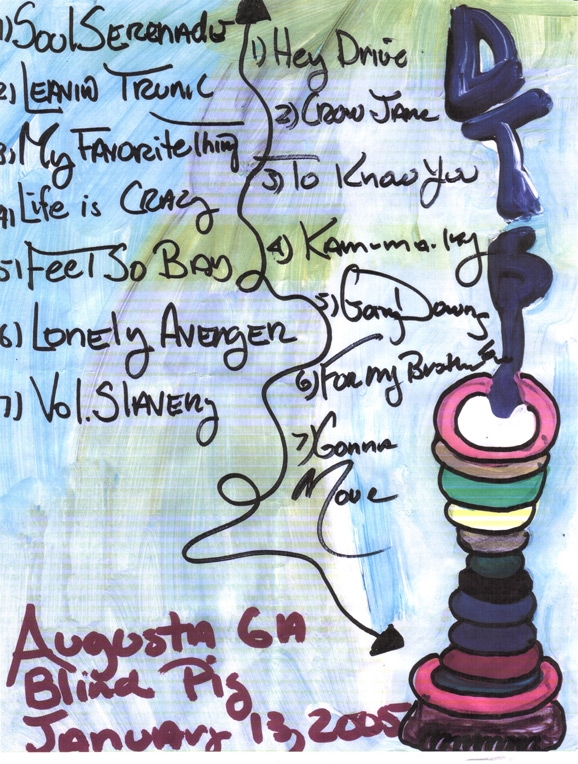 1) Soul Serenade
2) Leanin Trunk
3) My Favorite Thing
4) Life is Crazy
5) Feel So Bad
6) Lonely Avenger
7) Vol. Slavery
1) Hey Drive
2) Crow Jane
3) To Know You
4) Kam-ma-lay
5) Goin' Down
6) For my Brother
7) Gonna
Move
DTB
Augusta GA
Blind Pig
January 13, 2005